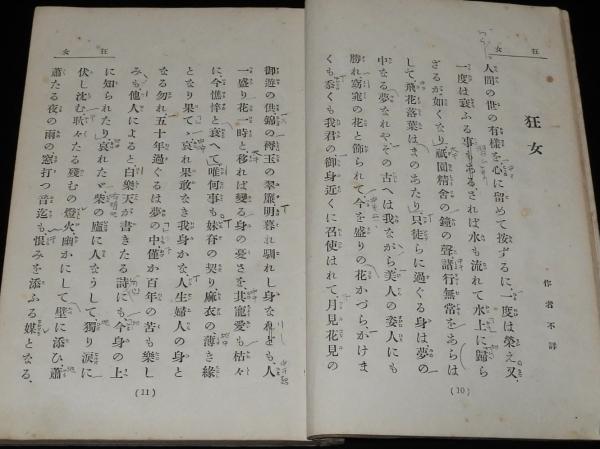 狂女
狂女
作者不詳
人間の世の有樣を心に留めて按ずるに、一度は榮え又、
一度は衰ふる事もあるされば水も流れて水上に歸ら
ざるが如くなり、祇園精舍の鐘の聲諸行無常をあらは
して、飛花落葉はまのあたり、只徒らに過ぐる身は夢の
中なる夢なれやその古へは我ながら美人の姿人にも
勝れ窈窕の花と飾られて今を盛りの花かづら、かけま
くも忝くも我君の御身近くに召使はれて、月見花見の
(10)
狂女
御遊の供錦の褥玉の翠簾明暮れ馴れし身なれども、人
一盛り花一時と、移れば變る身の憂さを其寵愛も枯々
に、今憔悴と衰へて、唯何事も妹脊の契り麻衣の薄き緣
となり果てゝ、哀れ果敢なき我身かな、人生婦人の身と
なる勿れ五十年過ぐるは夢の中、僅か百年の苦も樂し
みも他人によると、白樂天が書きたる詩にも今身の上
に知られたり、哀れたゞ柴の廬に人なうして、獨り淚に
伏し沈む耿々たる殘むの燈火、幽かにして壁に添ひ蕭
蕭たる夜の雨の窓打つ音迄も、恨みを添ふる媒となる、
(11)